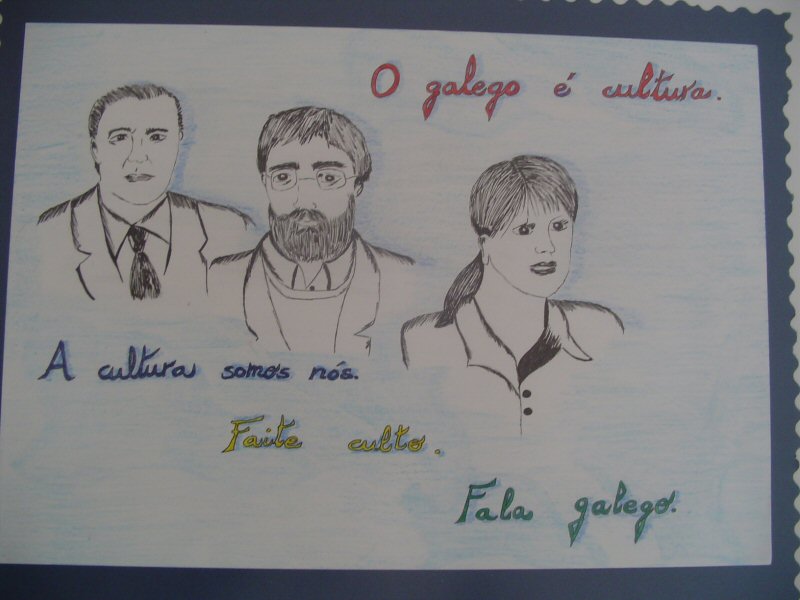 O galego é cultura.
A cultura somos nós.
Faite culto.
Fala galego.